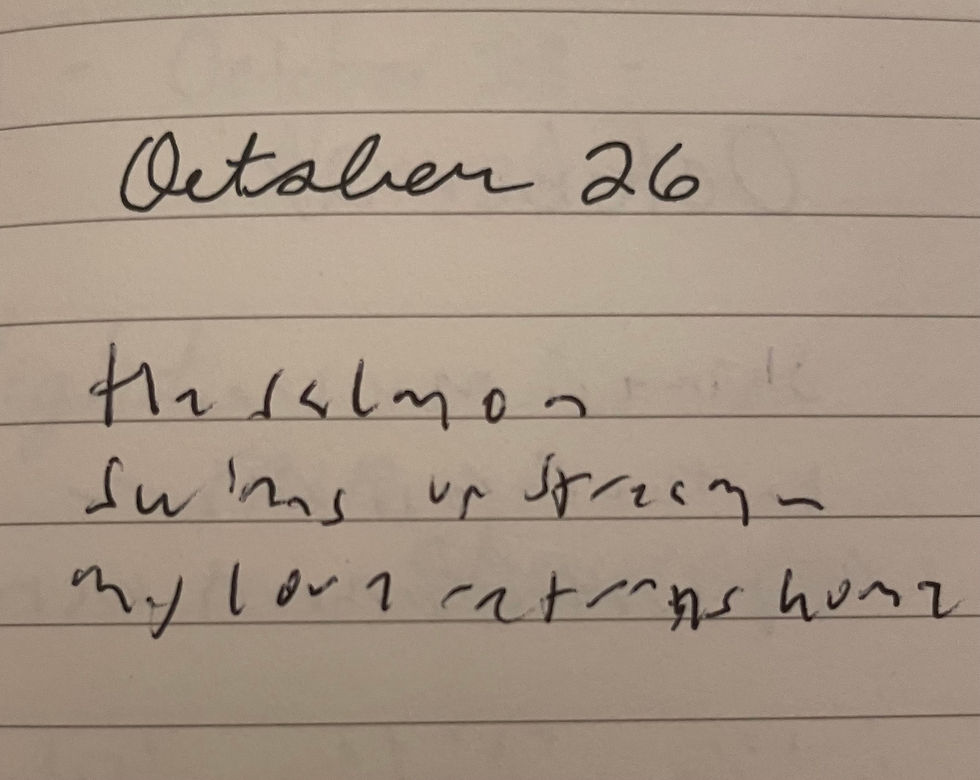 October 26
the salmon
swims up stream –
my love returns home